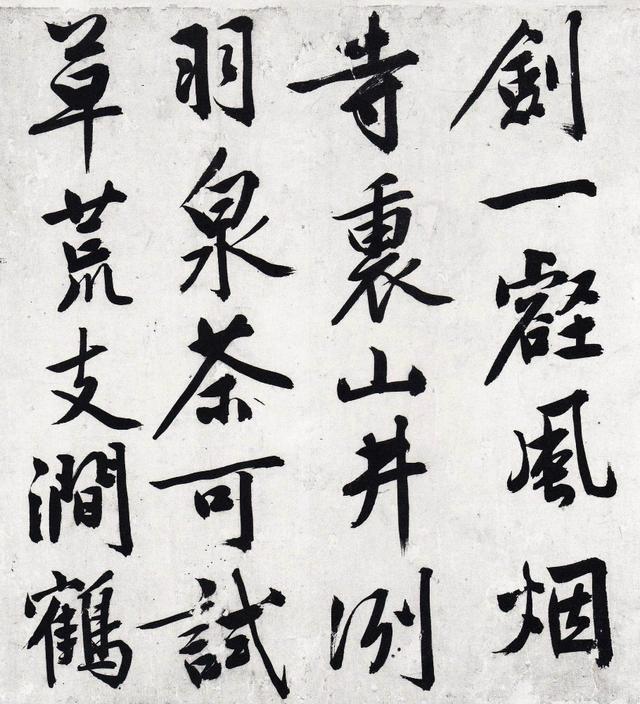 劍一壑風烟
寺裏山井冽
羽泉茶可試
草荒支澗鶴